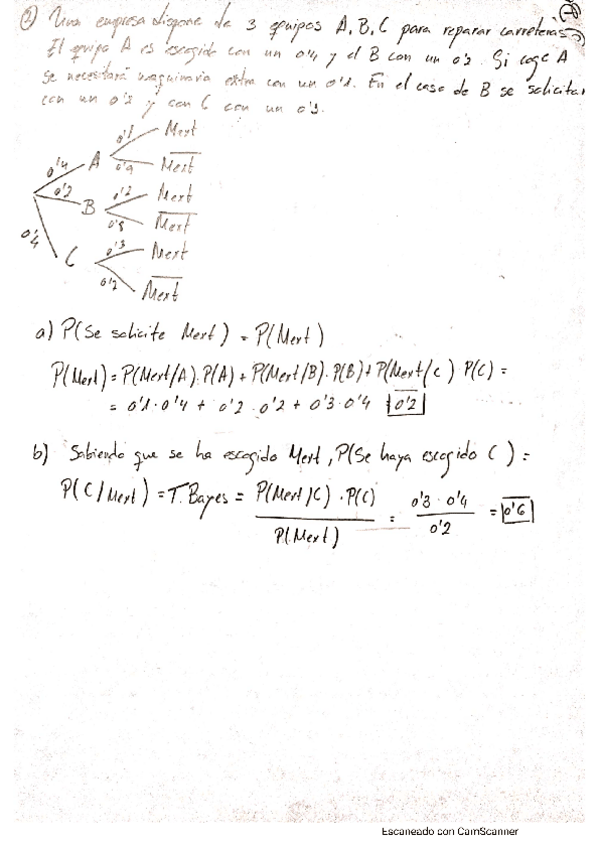 2) Una empresa dispone de 3 equipos A, B, C para reparar carreteras
El equipo A es escogido con un 0'4 y el B con un 0'2. Si coge A
se necesitará maquinaria extra con un 0'1. En el caso de B se solicitar
con un 0'2 y con C con un 0'3.
0'1 Mext
0'4 A
0'9 M̅e̅x̅t̅
0'2 B
0'2 Mext
0'8 M̅e̅x̅t̅
0'4 C
0'3 Mext
0'2 M̅e̅x̅t̅
a) P(Se solicite Mext) = P(Mext)
P(Mext) = P(Mext/A)·P(A) + P(Mext/B)·P(B) + P(Mext/C)·P(C) =
= 0'1·0'4 + 0'2·0'2 + 0'3·0'4 0'2
b) Sabiendo que se ha escogido Mext, P(Se haya escogido C) =
P(C/Mext) = T. Bayes = P(Mext/C)·P(C) / P(Mext) = 0'3·0'4 / 0'2 = 0'6
Escaneado con CamScanner